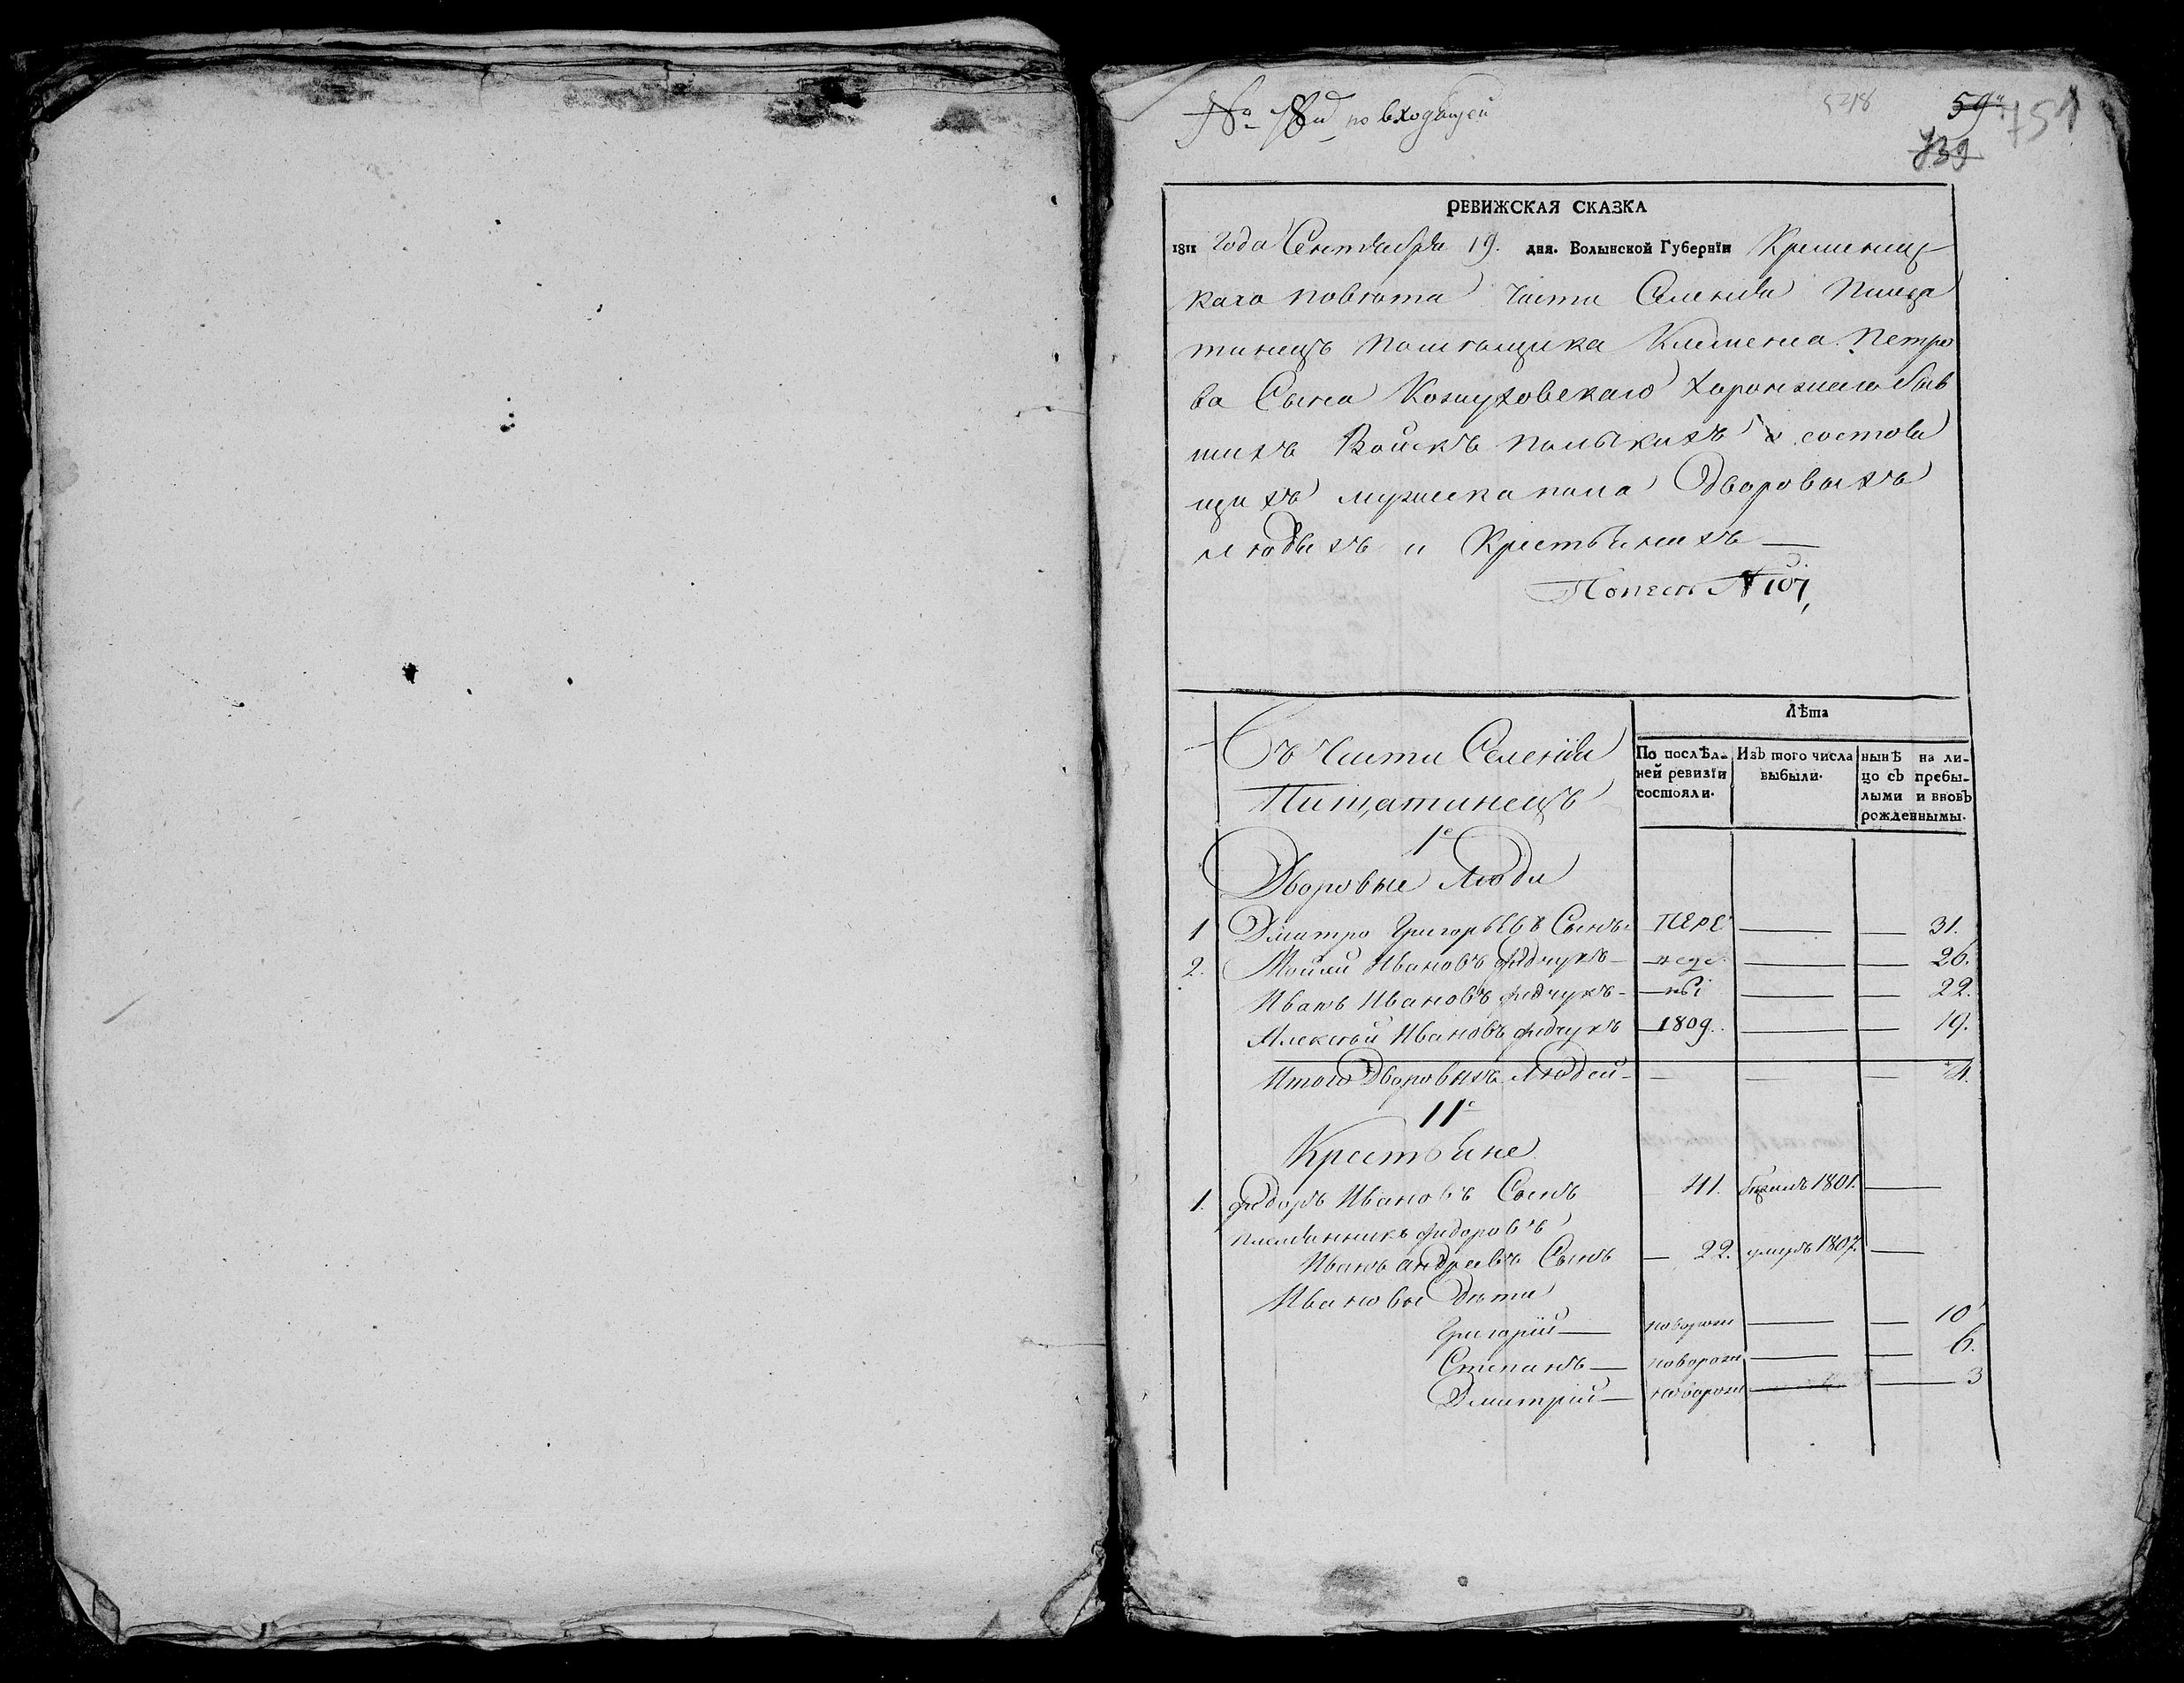 № 78й по входящей
5218
59
751
739
РЕВИЖСКАЯ СКАЗКА
1811 года Сентября 19. дня. Волынской Губернїи Кременец
каго повѣта части Селенїя Пища
тинецъ помѣщика Климента Петро
ва Сына Кожуховскаго Хоронжаго быв
шихъ Войскъ польскихъ о состоя
щихъ мужеска пола Дворовыхъ
людяхъ и Крестьянехъ —
№ 107,
Въ Части Селенїя
Пищатинецъ
Лѣта
По послѣд-
ней ревизїи
состояли.
Изъ того числа
выбыли.
нынѣ на ли-
цо съ прибы-
лыми и вновь
рожденнымы.
1е
Дворовые Люди
1 Дмитро Григорьевъ Сынъ пере — — 31.
2. Мойсей Ивановъ Федчукъ — веде — — 26.
Иванъ Ивановъ Федчукъ — ны — — 22.
Алексѣй Ивановъ Федчукъ 1809. — — 19.
Итого Дворовыхъ Людей — — — — 4.
11е
Крестьяне
1. Федоръ Ивановъ Сынъ 41. бѣжалъ 1801. —
племянникъ Федоровъ
Иванъ Андреевъ Сынъ — 22. умеръ 1807. —
Ивановы Дѣти
Григорїй — новорож — — 10
Степанъ — новорож — — 6.
Дмитрїй — новорож — — 3